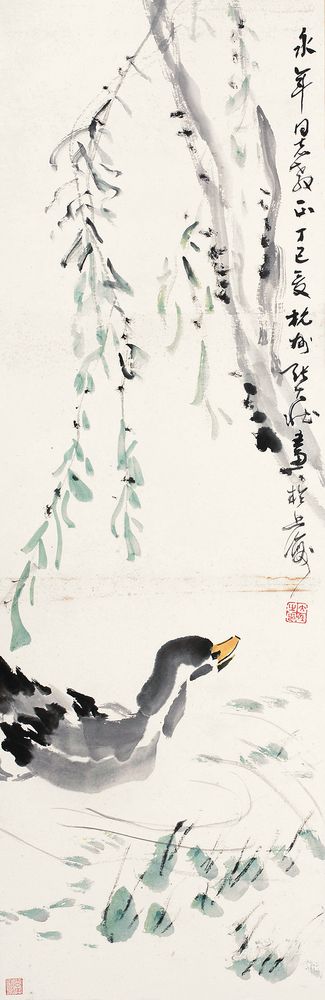 永年同志教正丁巳夏杭州张大壮画于上海